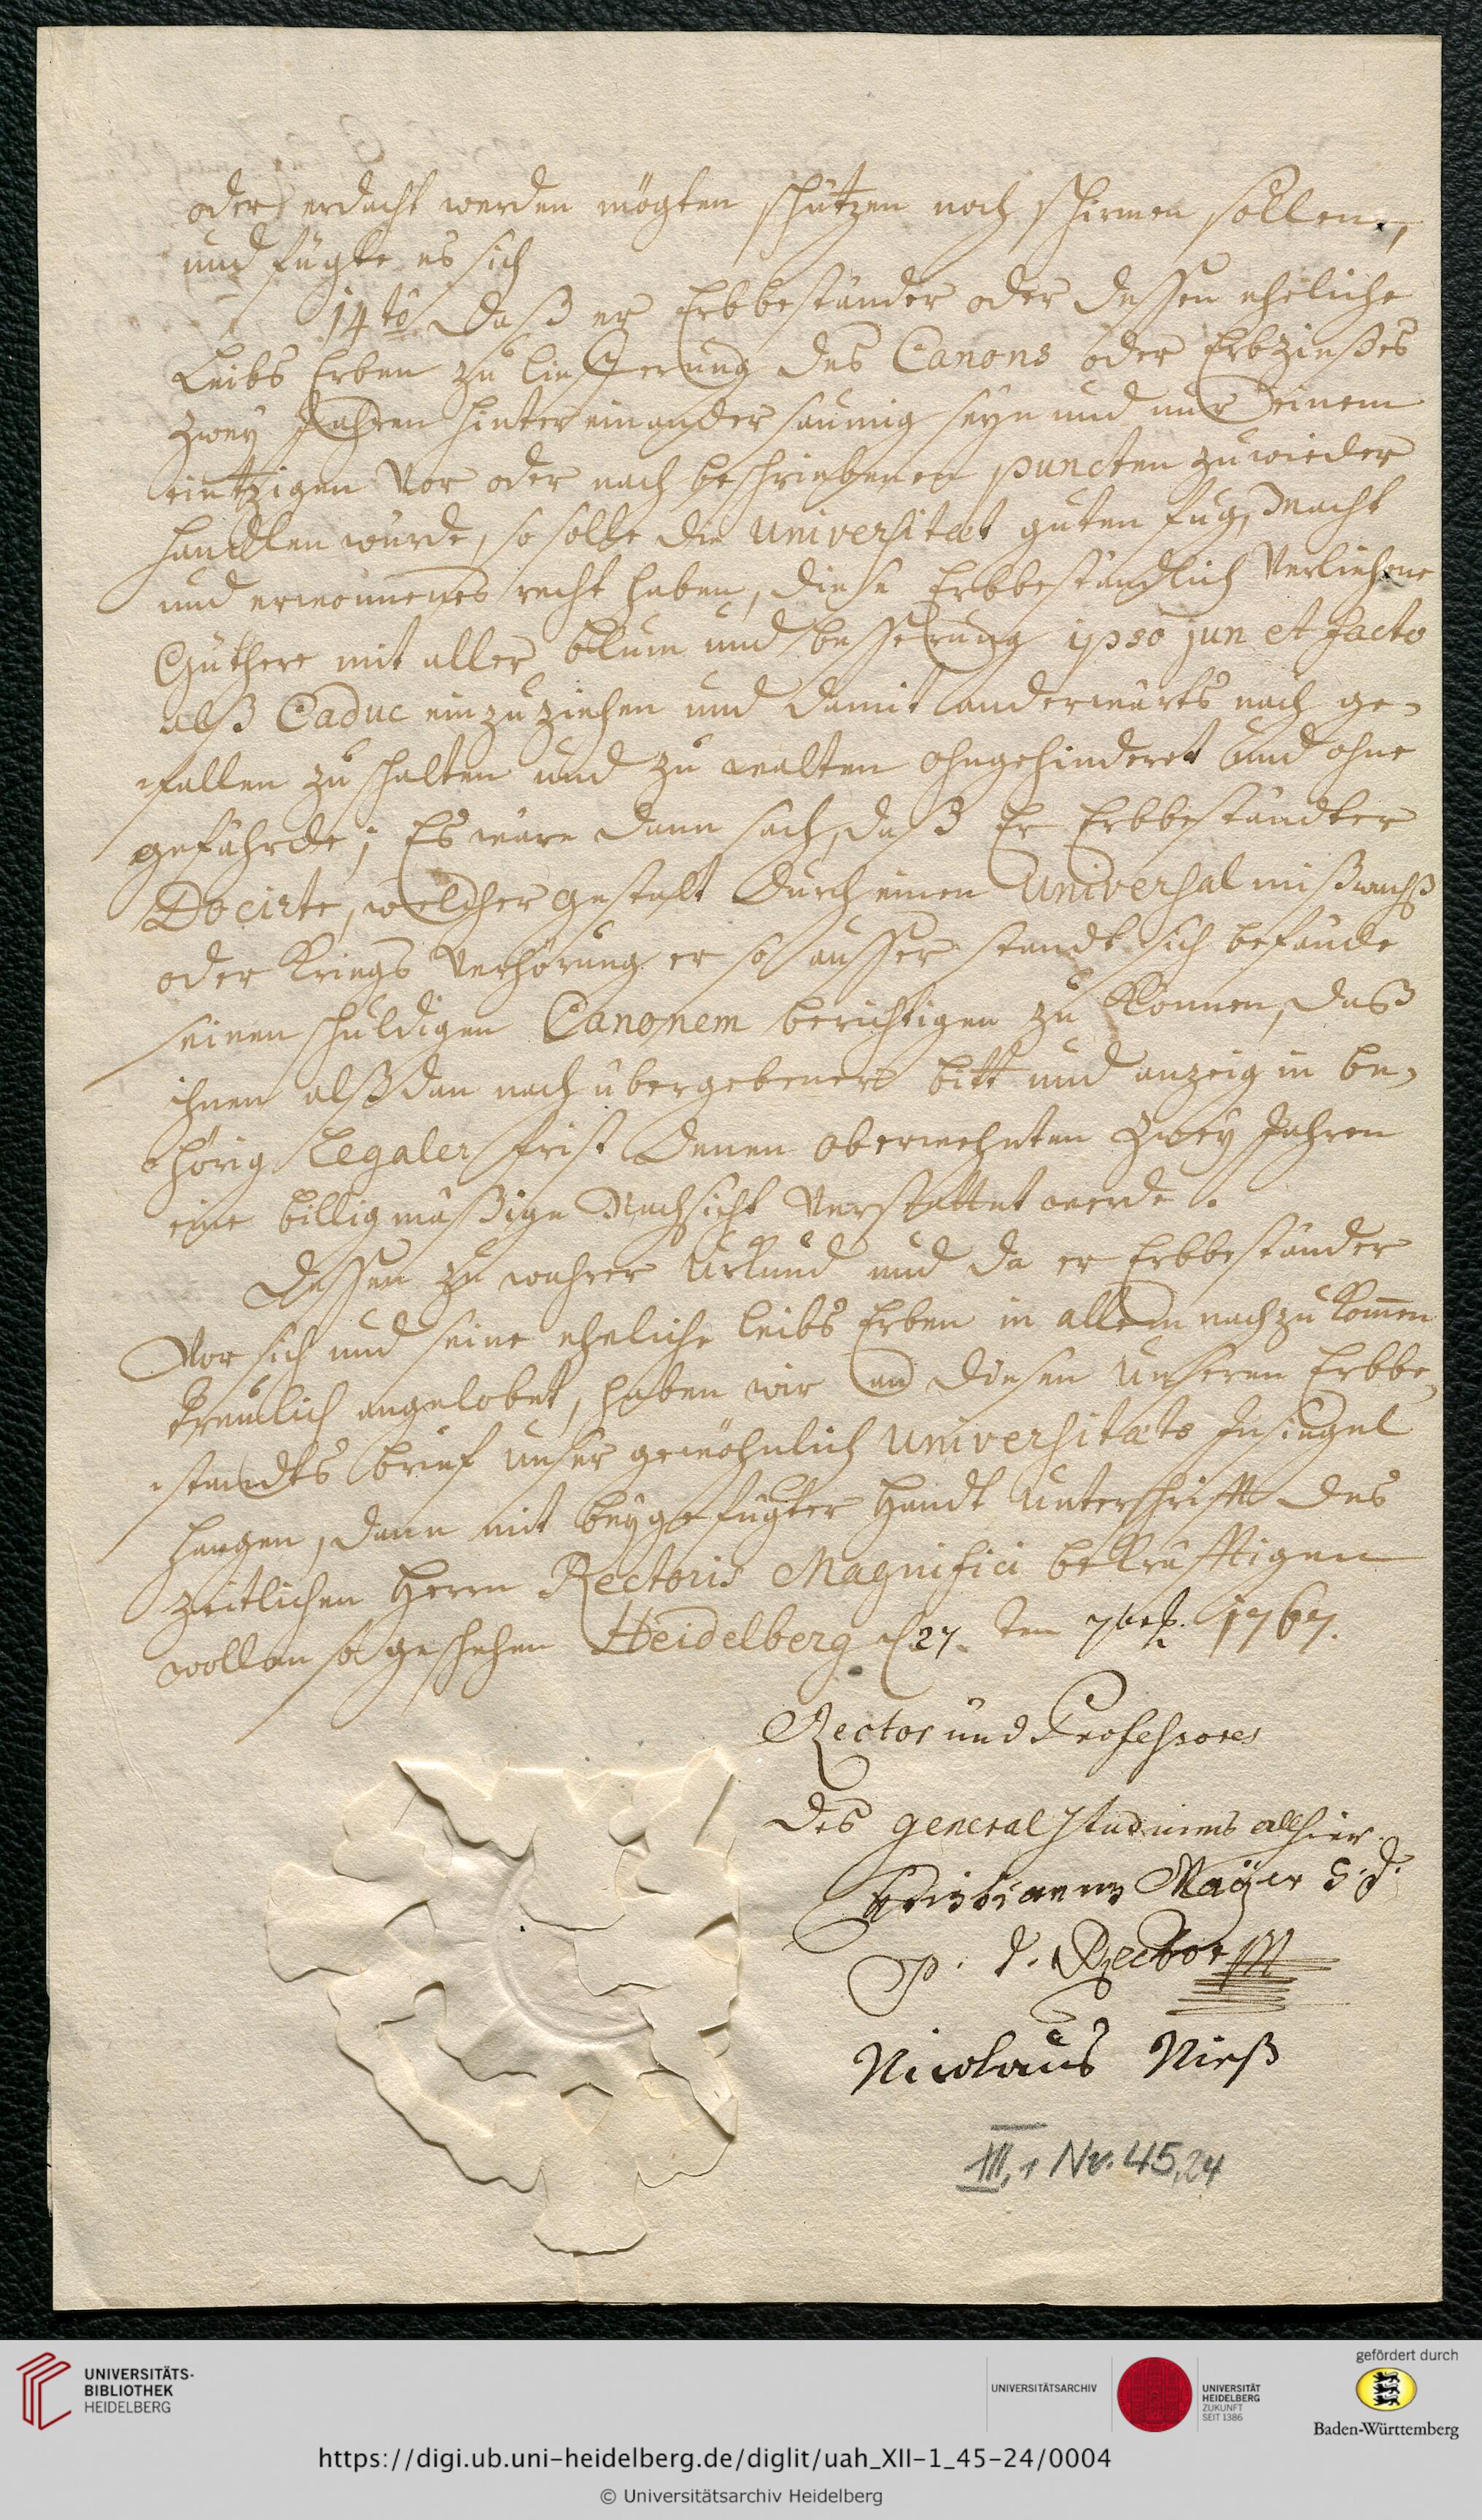 oder erdacht werden mögten schützen noch schirmen sollen,
und fügte es sich
14to Daß er Erbbeständer oder dessen eheliche
Leibs Erben zu liefferung des Canons oder Erbzinßes
zwey Jahren hintereinander saumig seyn und nur einem
eintzigen Vor oder nach beschriebenen puncten zuwieder
handlen würde, so solle die Universitæt guten fug, Macht
und gewonnenes recht haben, diese Erbbeständlich Verliehene
Güthere mit aller blum und besserung ipso juri et facto
alß Caduc einzuziehen und damit anderwärts nach ge-
fallen zu schalten und zu walten ohngehinderet und ohne
gefährde; Es wäre dann sach, daß Er Erbbeständter
Docirte, welcher gestalt durch einen Universal mißwachß
oder Kriegs Verhörung er so ausser standt sich befände
seinen schuldigen Canonem berichtigen zu können, daß
ihnen alßdan nach übergebener bitt und anzeig in be-
hörig Legaler frist denen oberwehnten zwey Jahren
eine billigmäßige Nachsicht Verstattet werde.
Dessen zu wahrer Urkund und da er Erbbeständer
Vor sich und seine eheliche leibs Erben in allem nachzukommen
treulich angelobet, haben wir an diesen Unseren Erbbe-
standts brief unser gewöhnlich Universitæts Insiegel
hangen, dann mit beygefügter Handt Unterschrifft des
zeitlichen Herrn Rectoris Magnifici bekräfftigen
wollen so geschehen Heidelberg d 27. ten 7bris 1767.
Rector und Professores
des general Studiums allhier.
Christianus Mayer S. J.
p. t. Rector
Nicolaus Nieß
XII,1 Nr. 45,24
UNIVERSITÄTS-
BIBLIOTHEK
HEIDELBERG
UNIVERSITÄTSARCHIV
UNIVERSITÄT
HEIDELBERG
ZUKUNFT
SEIT 1386
gefördert durch
Baden-Württemberg
https://digi.ub.uni-heidelberg.de/diglit/uah_XII-1_45-24/0004
© Universitätsarchiv Heidelberg